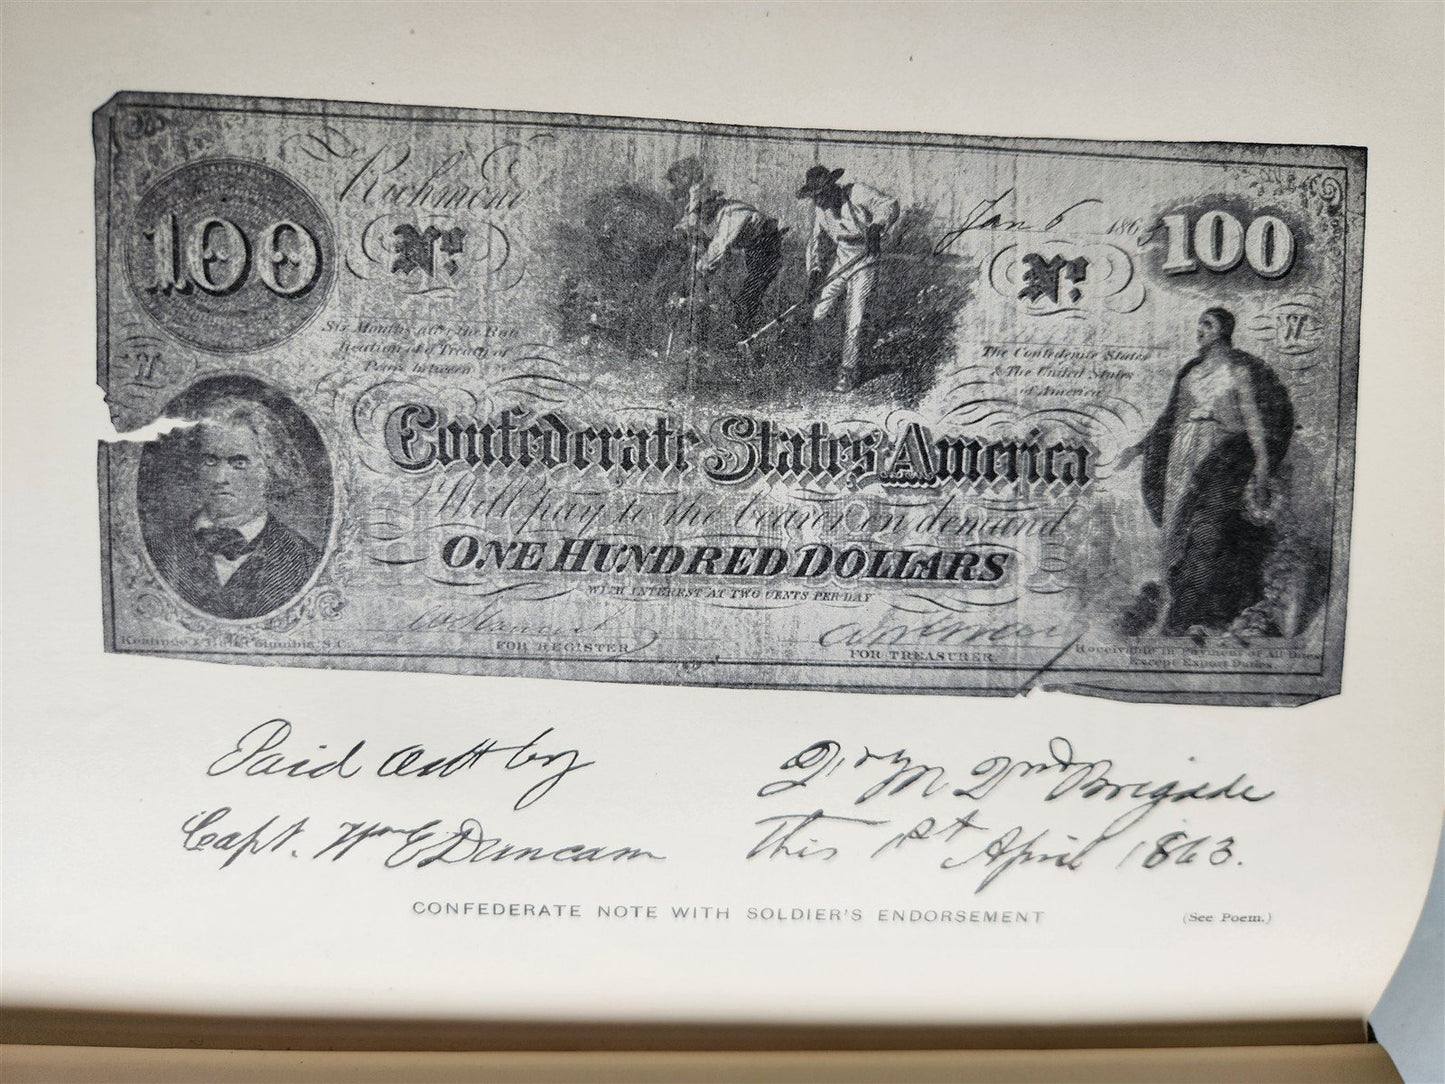 Richmond
Jan 6 186
100
No.
No.
100
Six Months after the Rati-
fication of a Treaty of
Peace between
The Confederate States
& The United States
of America
H
H
Confederate States America
Will pay to the bearer on demand
ONE HUNDRED DOLLARS
WITH INTEREST AT TWO CENTS PER DAY
FOR REGISTER
FOR TREASURER
Keatinge & Ball, Columbia, S.C.
Receivable in Payment of All Dues
Except Export Duties
Paid out by
Capt. Wm E Duncan
2nd Brigade
This 1st April 1863.
CONFEDERATE NOTE WITH SOLDIER'S ENDORSEMENT
(See Poem.)